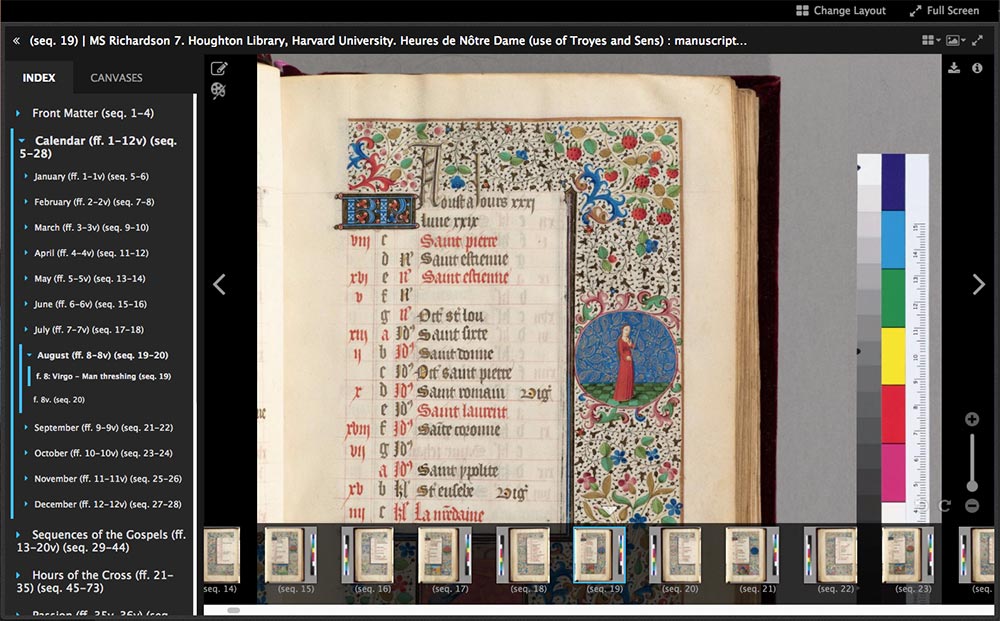 Change Layout
Full Screen
« (seq. 19) | MS Richardson 7. Houghton Library, Harvard University. Heures de Nôtre Dame (use of Troyes and Sens) : manuscript...
INDEX
CANVASES
Front Matter (seq. 1-4)
Calendar (ff. 1-12v) (seq.
5-28)
January (ff. 1-1v) (seq. 5-6)
February (ff. 2-2v) (seq. 7-8)
March (ff. 3-3v) (seq. 9-10)
April (ff. 4-4v) (seq. 11-12)
May (ff. 5-5v) (seq. 13-14)
June (ff. 6-6v) (seq. 15-16)
July (ff. 7-7v) (seq. 17-18)
August (ff. 8-8v) (seq. 19-20)
f. 8: Virgo - Man threshing (seq. 19)
f. 8v. (seq. 20)
September (ff. 9-9v) (seq. 21-22)
October (ff. 10-10v) (seq. 23-24)
November (ff. 11-11v) (seq. 25-26)
December (ff. 12-12v) (seq. 27-28)
Sequences of the Gospels (ff.
13-20v) (seq. 29-44)
Hours of the Cross (ff. 21-
35) (seq. 45-73)
Passion (ff. 35v-36v) (seq.
Aoust a Jours xxxi
lune xxix
viii c Saint pierre
d Saint estienne
xvi e Saint estienne
v f
g Oct st lou
xiii a Id9 Saint sixte
ii b Id9 Saint donne
c Id9 Oct saint pierre
x d Id9 Saint romain vig
e Id9 Saint laurent
xviii f Id9
vii g Id9
a Id9 Saint ypolite
xv b kl St eusebe vig
iiii c kl La
seq. 14)
(seq. 15)
(seq. 16)
(seq. 17)
(seq. 18)
(seq. 19)
(seq. 20)
(seq. 21)
(seq. 22)
(seq. 23)
(seq.